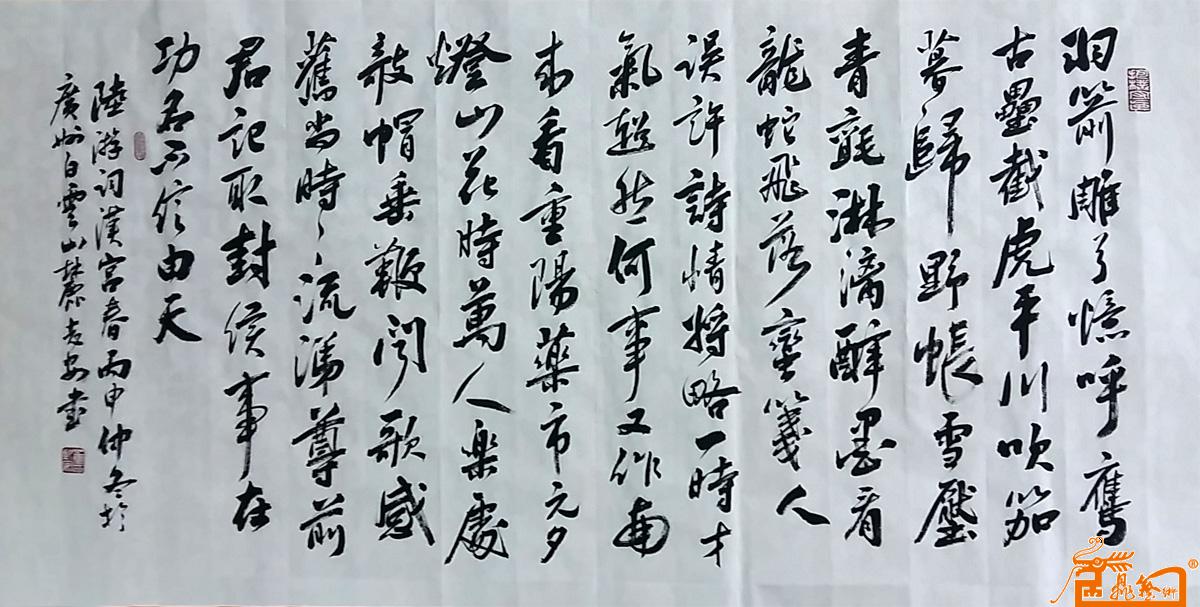 羽箭雕弓憶呼鷹
古壘截虎平川吹笳
暮歸野帳雪壓
青氈淋漓醉墨看
龍蛇飛落蠻箋人
誤許詩情將略一時才
氣超然何事又作南
來看重陽藥市元夕
燈山花時萬人樂處
敧帽垂鞭聞歌感
舊尚時〻流涕尊前
君記取封侯事在
功名不信由天
陸游詞漢宮春丙申仲冬於
廣州白雲山麓志安書